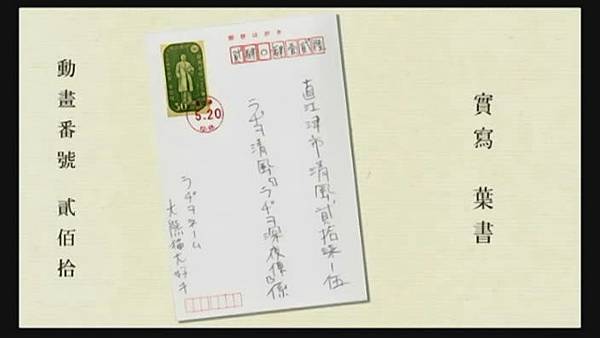 實寫 葉書
郵便はがき
直江津市清風貳拾柒ー伍
ラヂヲ清風内ラヂヲ深夜便係
ラヂヲネーム
大熊猫大好キ
50
5.20
動畫番號 貳佰拾